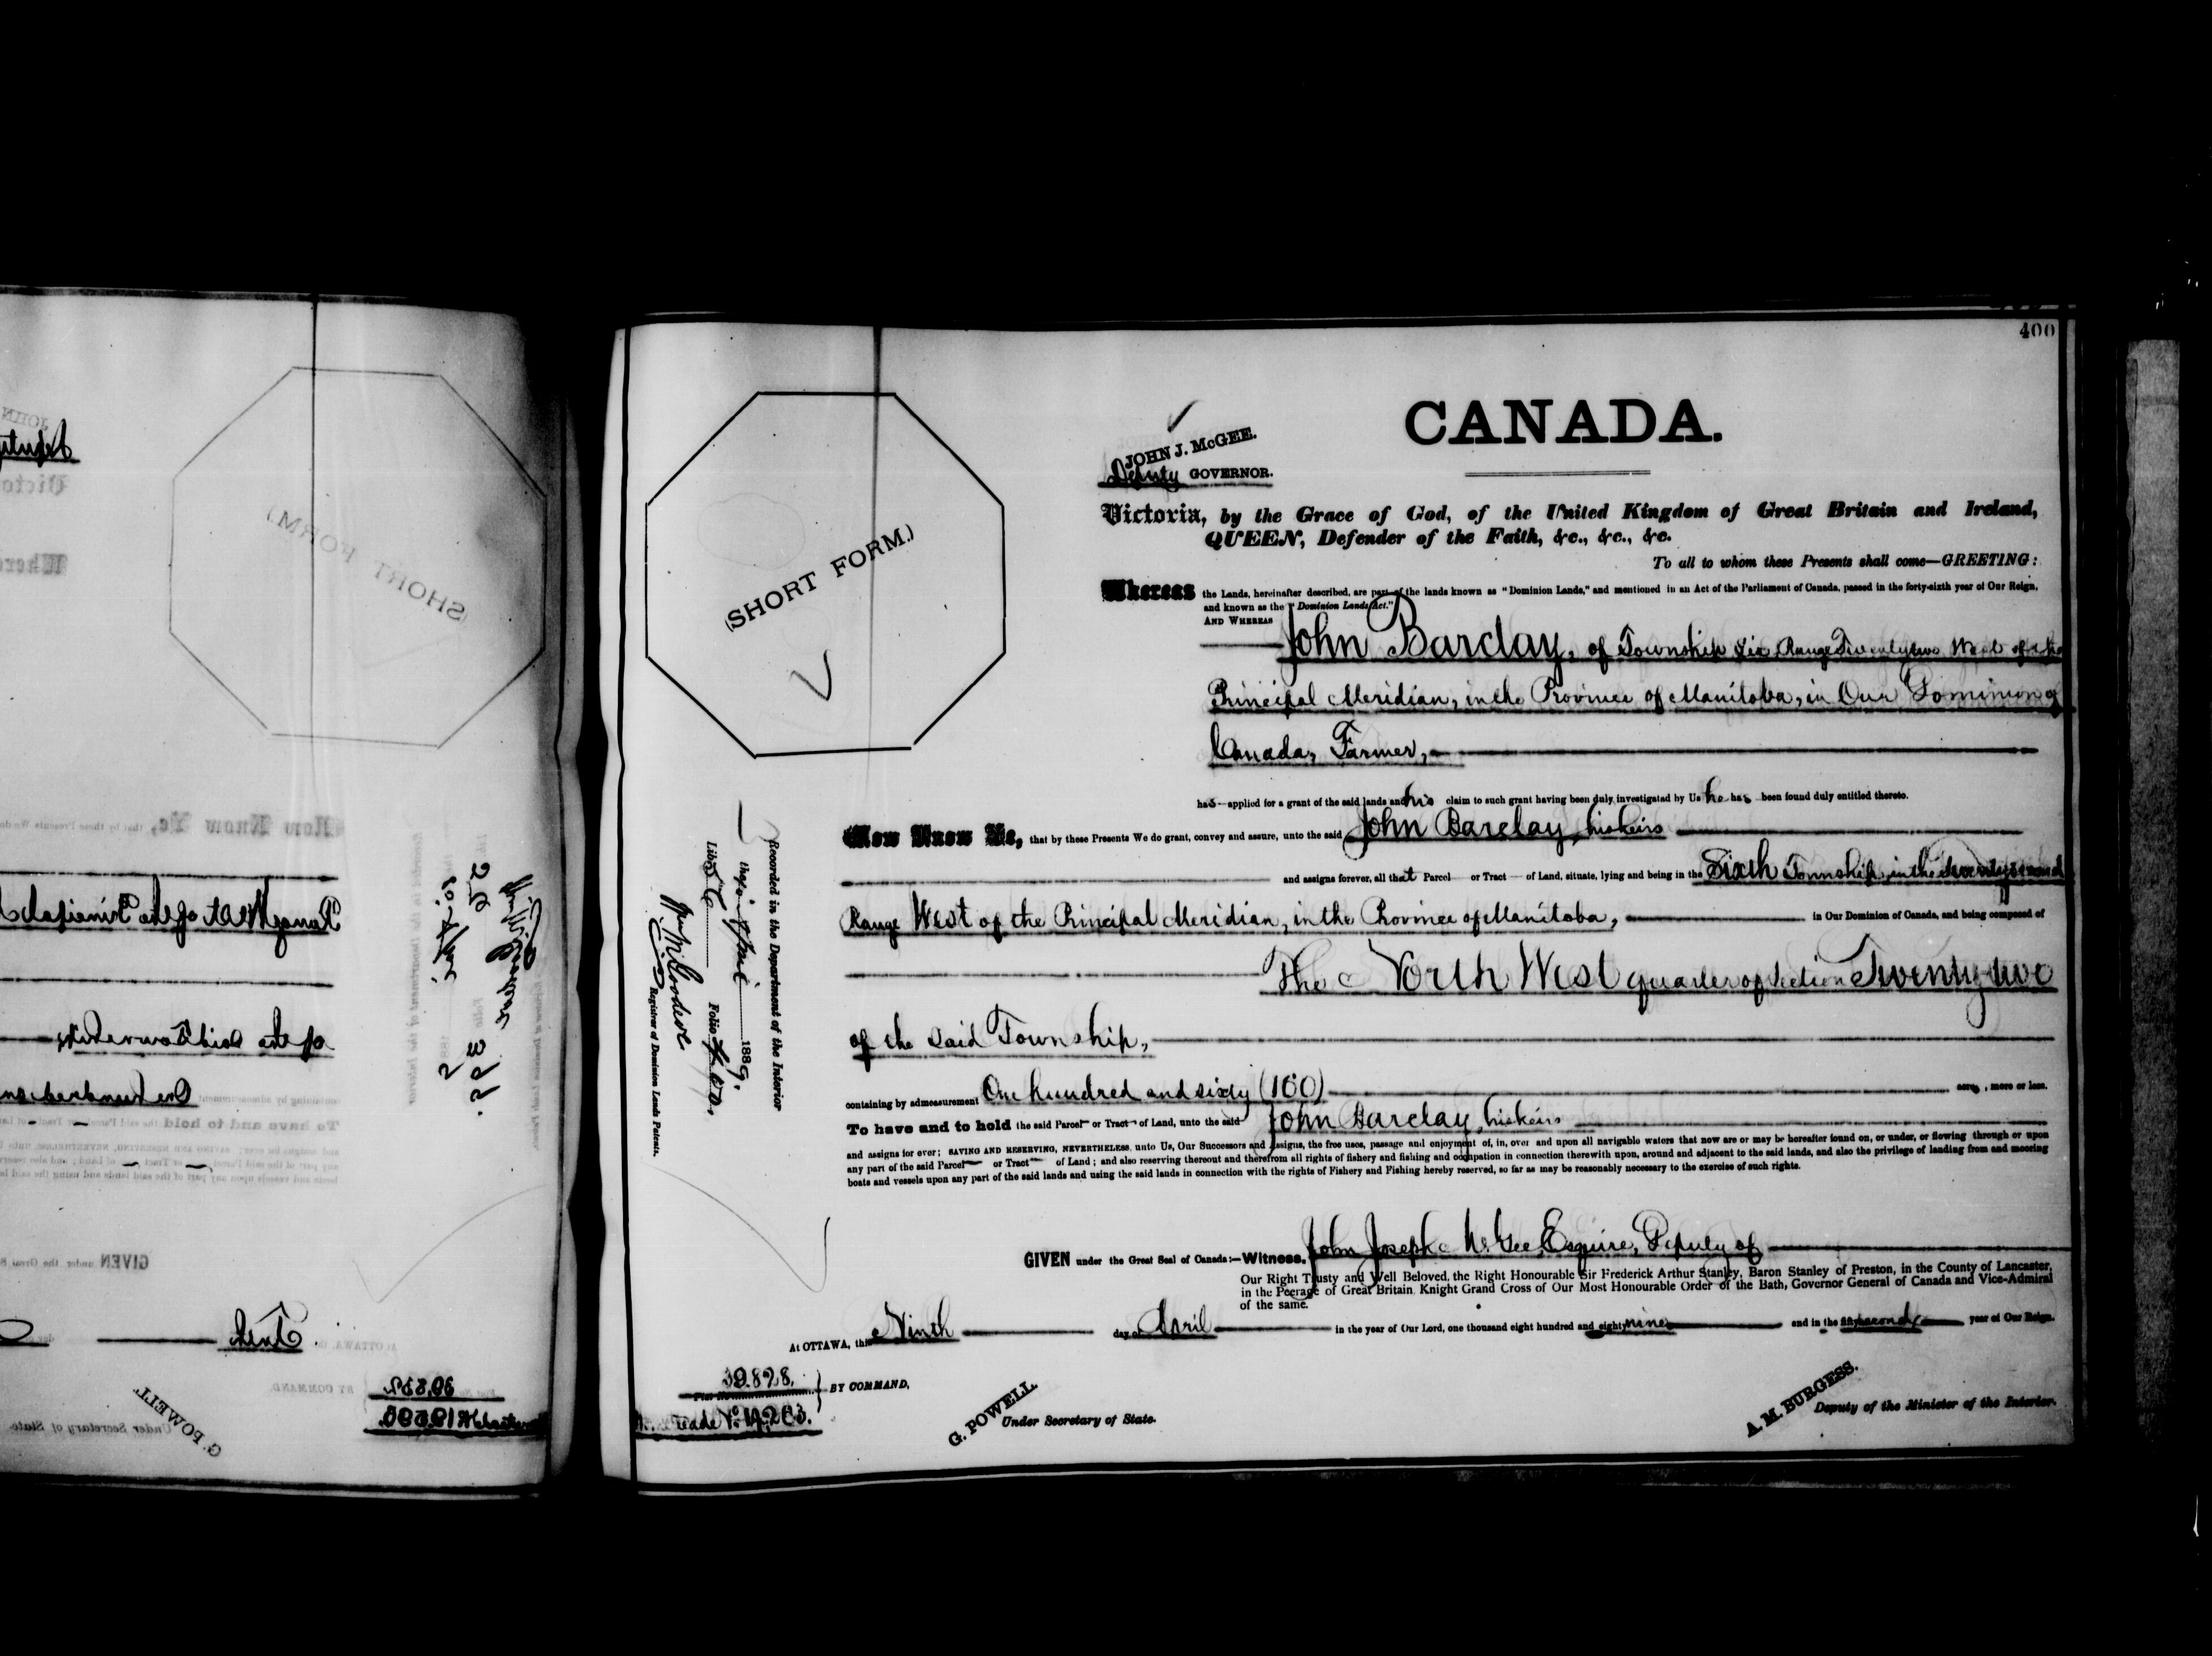 400
CANADA.
JOHN J. McGEE.
Deputy GOVERNOR.
Victoria, by the Grace of God, of the United Kingdom of Great Britain and Ireland,
QUEEN, Defender of the Faith, &c., &c., &c.
To all to whom these Presents shall come—GREETING:
Whereas the Lands, hereinafter described, are part of the lands known as "Dominion Lands," and mentioned in an Act of the Parliament of Canada, passed in the forty-sixth year of Our Reign,
and known as the "Dominion Lands Act."
AND WHEREAS
John Barclay, of Township Six Range Twenty two West of the
Principal Meridian, in the Province of Manitoba, in Our Dominion of
Canada, Farmer,
has applied for a grant of the said lands and his claim to such grant having been duly investigated by Us he has been found duly entitled thereto.
Now Know Ye, that by these Presents We do grant, convey and assure, unto the said John Barclay, his heirs
and assigns forever, all that Parcel or Tract of Land, situate, lying and being in the Sixth Township, in the Twenty second
Range West of the Principal Meridian, in the Province of Manitoba, in Our Dominion of Canada, and being composed of
The North West quarter of Section Twenty-two
of the said Township,
containing by admeasurement One hundred and sixty (160) acres, more or less.
To have and to hold the said Parcel or Tract of Land, unto the said John Barclay, his heirs
and assigns for ever; SAVING AND RESERVING, NEVERTHELESS, unto Us, Our Successors and Assigns, the free uses, passage and enjoyment of, in, over and upon all navigable waters that now are or may be hereafter found on, or under, or flowing through or upon
any part of the said Parcel or Tract of Land; and also reserving thereout and therefrom all rights of fishery and fishing and occupation in connection therewith upon, around and adjacent to the said lands, and also the privilege of landing from and mooring
boats and vessels upon any part of the said lands and using the said lands in connection with the rights of Fishery and Fishing hereby reserved, so far as may be reasonably necessary to the exercise of such rights.
GIVEN under the Great Seal of Canada:—Witness, John Joseph McGee, Esquire, Deputy of
Our Right Trusty and Well Beloved, the Right Honourable Sir Frederick Arthur Stanley, Baron Stanley of Preston, in the County of Lancaster,
in the Peerage of Great Britain, Knight Grand Cross of Our Most Honourable Order of the Bath, Governor General of Canada and Vice-Admiral
of the same.
At OTTAWA, this Ninth day of April in the year of Our Lord, one thousand eight hundred and eighty nine and in the fifty second year of Our Reign.
BY COMMAND,
G. POWELL.
Under Secretary of State.
A. M. BURGESS.
Deputy of the Minister of the Interior.
(SHORT FORM.)
Recorded in the Department of the Interior
1889.
Liber Folio 400.
Registrar of Dominion Lands Patents.